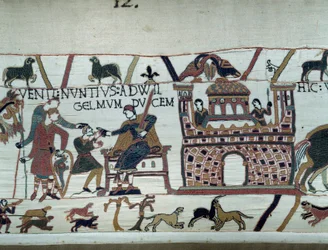 12.
VENIT:NUNTIUS:ADWIL
GELMUM DUCEM
HIC:V